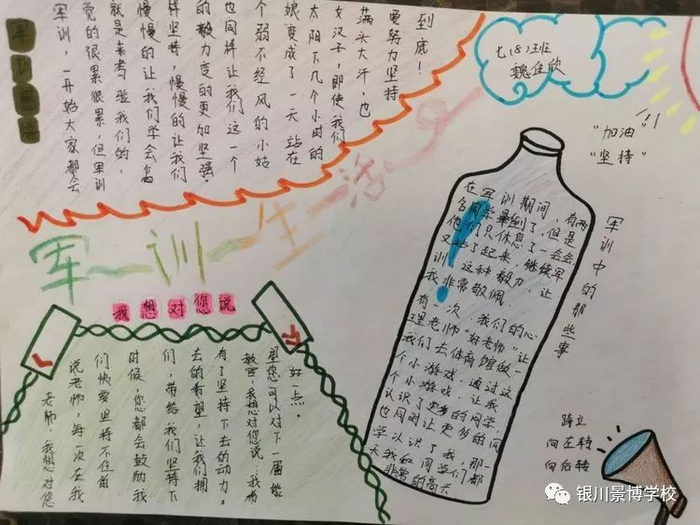 军训感悟
军训，一开始大家都会
觉的很累很累，但军训
就是来考验我们的，
慢慢的让我们学会怎
样坚持，慢慢的让我们
的毅力变的更加坚强。
也同样让我们这一个
个弱不经风的小姑
娘变成了一天站在
太阳下几个小时的
女汉子，即使我们
满头大汗，也
要努力坚持
到底！
七(8)班
魏佳欣
"加油"
"坚持"
军训生活
我想对您说
老师，我想对您
说老师，每一次在我
们快要坚持不住的
时候，您都会鼓励我
们，带给我们坚持下
去的希望，让我们拥
有了坚持下去的动力。
教官，我想对您说，我希
望您可以对下一届能
好一点。
在军训期间，有两
名同学晕倒了，但是
他们只休息了一会会
又站了起来，继续军
训，这种毅力，让
我非常敬佩。
有一次，我们的心
理老师"好老师"让
我们去体育馆做一
个小游戏，通过这
个小游戏，让我
认识了更多的同学，
也同时让更多的同
学认识了我，那一
天我和同学们都
非常的高兴。
军训中的那些事
跨立
向左转
向后转
银川景博学校